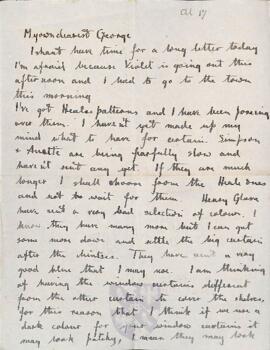 Al 17
My own dearest George
I shant have time for a long letter today
I'm afraid because Violet is going out this
afternoon and I had to go to the town
this morning
I've got Heales patterns and I have been poring
over them. I haven't yet made up my
mind what to have for curtain. Simpson
+ are being fearfully slow and
haven't sent any yet. If they are much
longer I shall choose from the Heal ones
and not wait for them Henry Glave
have sent a very bad selection of colour. I
know they have many more but I can get
some more down and settle the big curtain
after the chintzes. They have sent a very
good blue that I may use. I am thinking
of having the window curtains different
from the other curtain to cover the shelves,
for this reason that I think if we use a
dark colour for window curtains it
may look patchy, I mean they may look